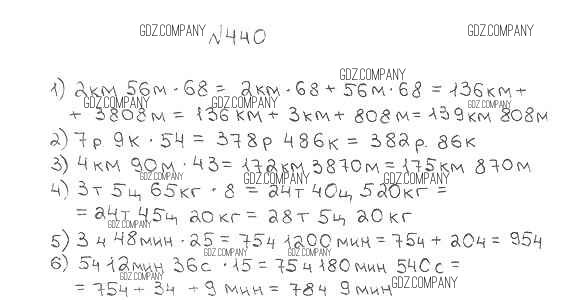 GDZ.COMPANY
№440
GDZ.COMPANY
GDZ.COMPANY
1) 2км 56м · 68 = 2км · 68 + 56м · 68 = 136км +
GDZ.COMPANY GDZ.COMPANY GDZ.COMPANY
+ 3808м = 136км + 3км + 808м = 139км 808м
2) 7р 9к · 54 = 378р 486к = 382р. 86к
3) 4км 90м · 43 = 172км 3870м = 175км 870м
GDZ.COMPANY GDZ.COMPANY GDZ.COMPANY
4) 3т 5ц 65кг · 8 = 24т 40ц 520кг =
= 24т 45ц 20кг = 28т 5ц 20кг
GDZ.COMPANY
5) 3ч 48мин · 25 = 75ч 1200мин = 75ч + 20ч = 95ч
GDZ.COMPANY GDZ.COMPANY
6) 5ч 12мин 36с · 15 = 75ч 180мин 540с =
GDZ.COMPANY GDZ.COMPANY
= 75ч + 3ч + 9мин = 78ч 9мин